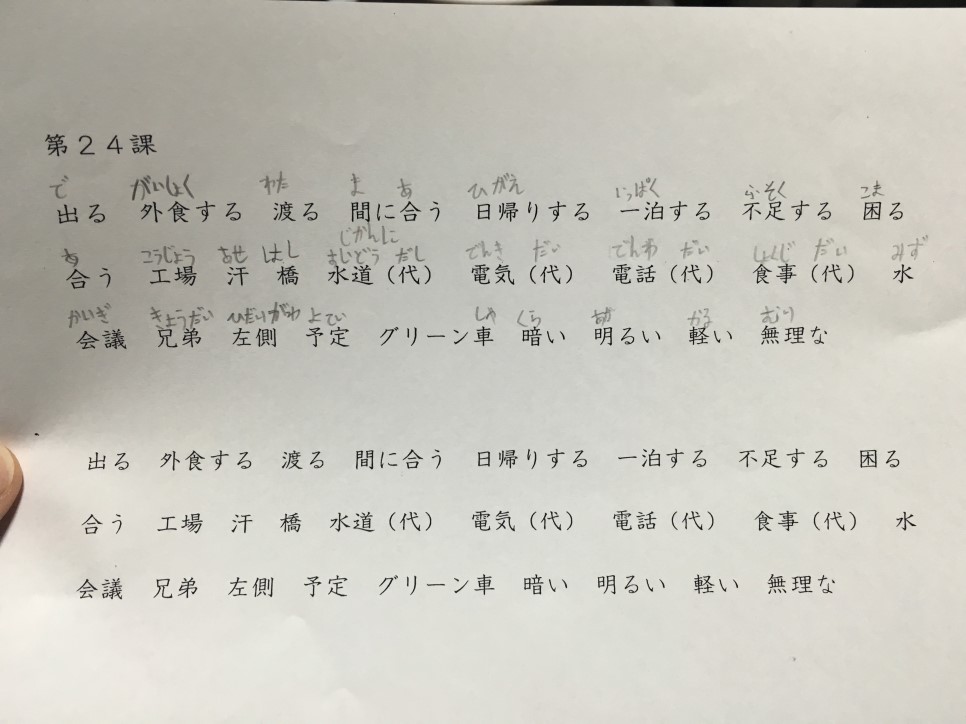 第２４課
で がいしょく わた ま あ ひ がえ いっぱく ふそく こま
出る 外食する 渡る 間に合う 日帰りする 一泊する 不足する 困る
じかんに
あ こうじょう あせ はし すいどう だい でんき だい でんわ だい しょくじ だい みず
合う 工場 汗 橋 水道（代） 電気（代） 電話（代） 食事（代） 水
かいぎ きょうだい ひだりがわ よてい しゃ くら あか かる むり
会議 兄弟 左側 予定 グリーン車 暗い 明るい 軽い 無理な
出る 外食する 渡る 間に合う 日帰りする 一泊する 不足する 困る
合う 工場 汗 橋 水道（代） 電気（代） 電話（代） 食事（代） 水
会議 兄弟 左側 予定 グリーン車 暗い 明るい 軽い 無理な